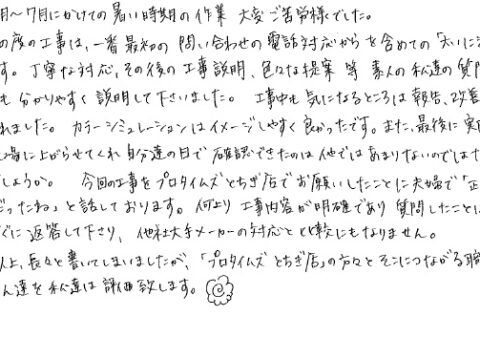 月〜7月にかけての暑い時期の作業 大変ご苦労様でした。
の度の工事は、一番最初の問い合わせの電話対応からを含めての「大いに
す。丁寧な対応、その後の工事説明、色々な提案 等 素人の私達の質問
も 分かりやすく 説明して下さいました。 工事中も気になるところは報告、改善
れました。 カラーシミュレーションはイメージしやすく良かったです。また、最後に実際
足場に上がらせてくれ 自分達の目で確認できたのは他ではあまりないのではな
でしょうか。 今回の工事をプロタイムズとちぎ店でお願いしたことに夫婦で「正
だったね」と話しております。何より工事内容が明確であり 質問したことに
ぐに返答して下さり、他社大手メーカーの対応とは比較にもなりません。
以上、長々と書いてしまいましたが、「プロタイムズ とちぎ店」の方々とそこにつながる職
ん達を私達は評価致します。